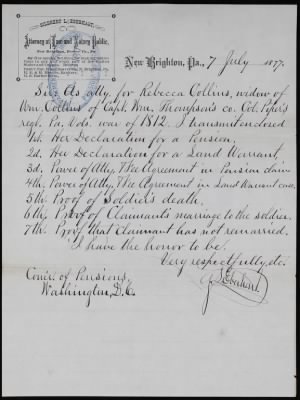 GILBERT L. EBERHART,
Attorney at Law and Notary Public,
New Brighton, Pa., 7 July 1877.
Sir: As atty. for Rebecca Collins, widow of
Wm. Collins of Capt. Wm. Thompson's co. Col. Piper's
regt. Pa. Vols. war of 1812. I transmit enclosed
1st. Her Declaration for a Pension.
2d. Her Declaration for a Land Warrant,
3d. Power of Atty. & Fee Agreement in Pension claim
4th. Power of Atty. & Fee Agreement in Land Warrant case.
5th. Proof of Soldier's death.
6th. Proof of Claimants marriage to the soldier.
7th. Proof that claimant has not remarried.
I have the honor to be.
Very respectfully, etc.
G. L. Eberhart.
Comr. of Pensions,
Washington, D.C.